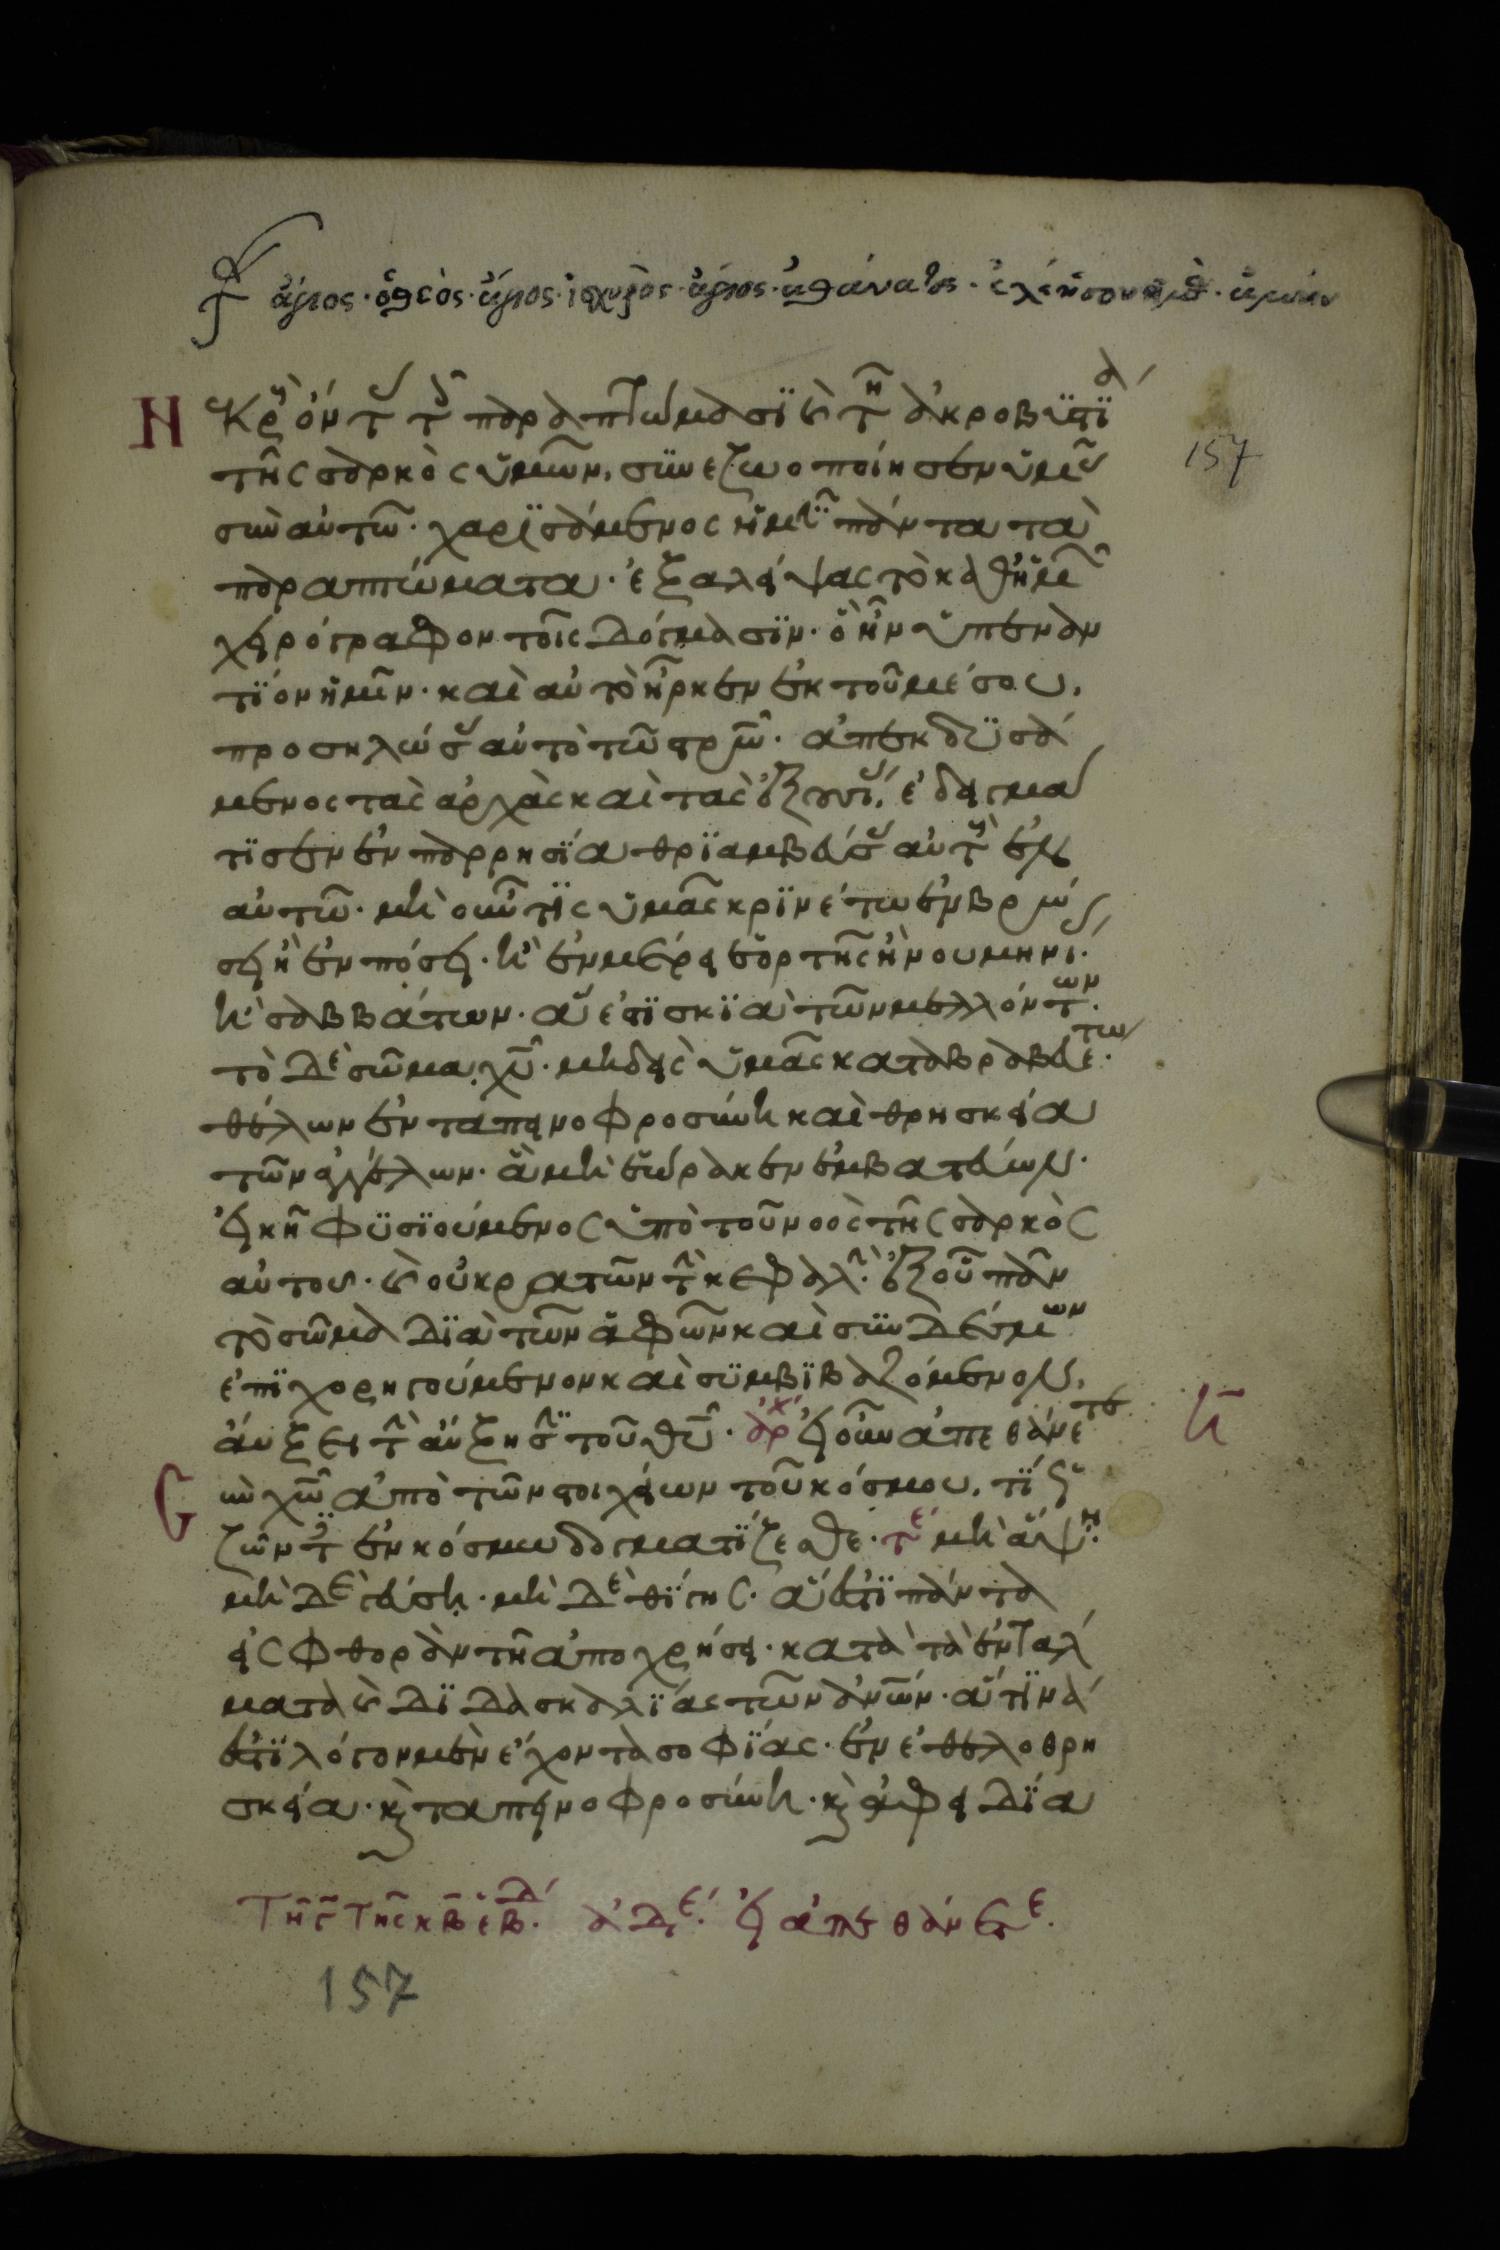 ἅγιος · ὁ θεὸς · ἅγιος · ἰσχυρὸς · ἅγιος · ἀθάνατος · ἐλέησον ἡμᾶς · ἀμήν
Ν
νεκροὺς ὄντας τοῖς παραπτώμασϊ καὶ τῆ ἀκροβϋστϊα
157
τῆς σαρκὸς ὑμῶν, σϋνεζωοποίησεν ὑμᾶς
σὺν αὐτῶ · χαρϊσάμενος ἡμῖν πάντα τὰ
παραπτώματα · ἐξαλείψας τὸ καθ' ἡμῶν
χειρόγραφον τοῖς δόγμασϊν · ὃ ἦν ὑπεναν
τϊον ἡμῖν · καὶ αὐτὸ ἦρκεν ἐκ τοῦ μέσου,
προσηλώσας αὐτὸ τῶ στρω · ἀπεκδϋσά
μενος τὰς ἀρχὰς καὶ τὰς ἐξουσϊας, ἐδειγμά
τϊσεν ἐν παρρησϊα θρϊαμβεύσας αὐτοὺς ἐν
αὐτῶ · μὴ οὖν τϊς ὑμᾶς κρϊνέτω ἐν βρώ
σει ἢ ἐν πόσει · ἢ ἐν μέρει ἑορτῆς ἢ νουμηνί ·
ἢ σαββάτων · ἅ ἐστϊ σκϊὰ τῶν μελλόντων ·
τὸ δὲ σῶμα χυ · μηδεὶς ὑμᾶς καταβραβευέτω ·
θέλων ἐν ταπεινοφροσύνη καὶ θρησκεία
τῶν ἀγγέλων · ἃ μὴ ἑώρακεν ἐμβατεύων ·
εἰκῆ φϋσϊούμενος ὑπὸ τοῦ νοὸς τῆς σαρκὸς
αὐτοῦ · καὶ οὐ κρατῶν τὴν κεφαλὴν · ἐξ οὗ πᾶν
τὸ σῶμα δϊὰ τῶν ἁφῶν καὶ σϋνδέσμων
ἐπϊχορηγούμενον καὶ σϋμβϊβαζόμενον,
αὔξει τὴν αὔξησϊν τοῦ θυ · ἀρχ εἰ οὖν ἀπεθάνετε
σὺν χω ἀπὸ τῶν στοιχείων τοῦ κόσμου, τϊ ὡς
ζῶντες ἐν κόσμω δογματϊζεσθε · τε μὴ ἅψη ·
μὴ δὲ γεύση · μὴ δὲ θϊγης · ἅ ἐστϊ πάντα
εἰς φθορὰν τῆ ἀποχρήσει · κατὰ τὰ ἐντάλ
ματα καὶ δϊδασκαλϊας τῶν ἀνων · ἅτϊνά
ἐστϊ λόγον μὲν ἔχοντα σοφϊας · ἐν ἐθελοθρη
σκεία · καὶ ταπεινοφροσύνη · καὶ ἀφειδϊα
τῆς γ τῆς κβ ἑβδ · ἀδε · εἰ ἀπεθάνετε ·
157